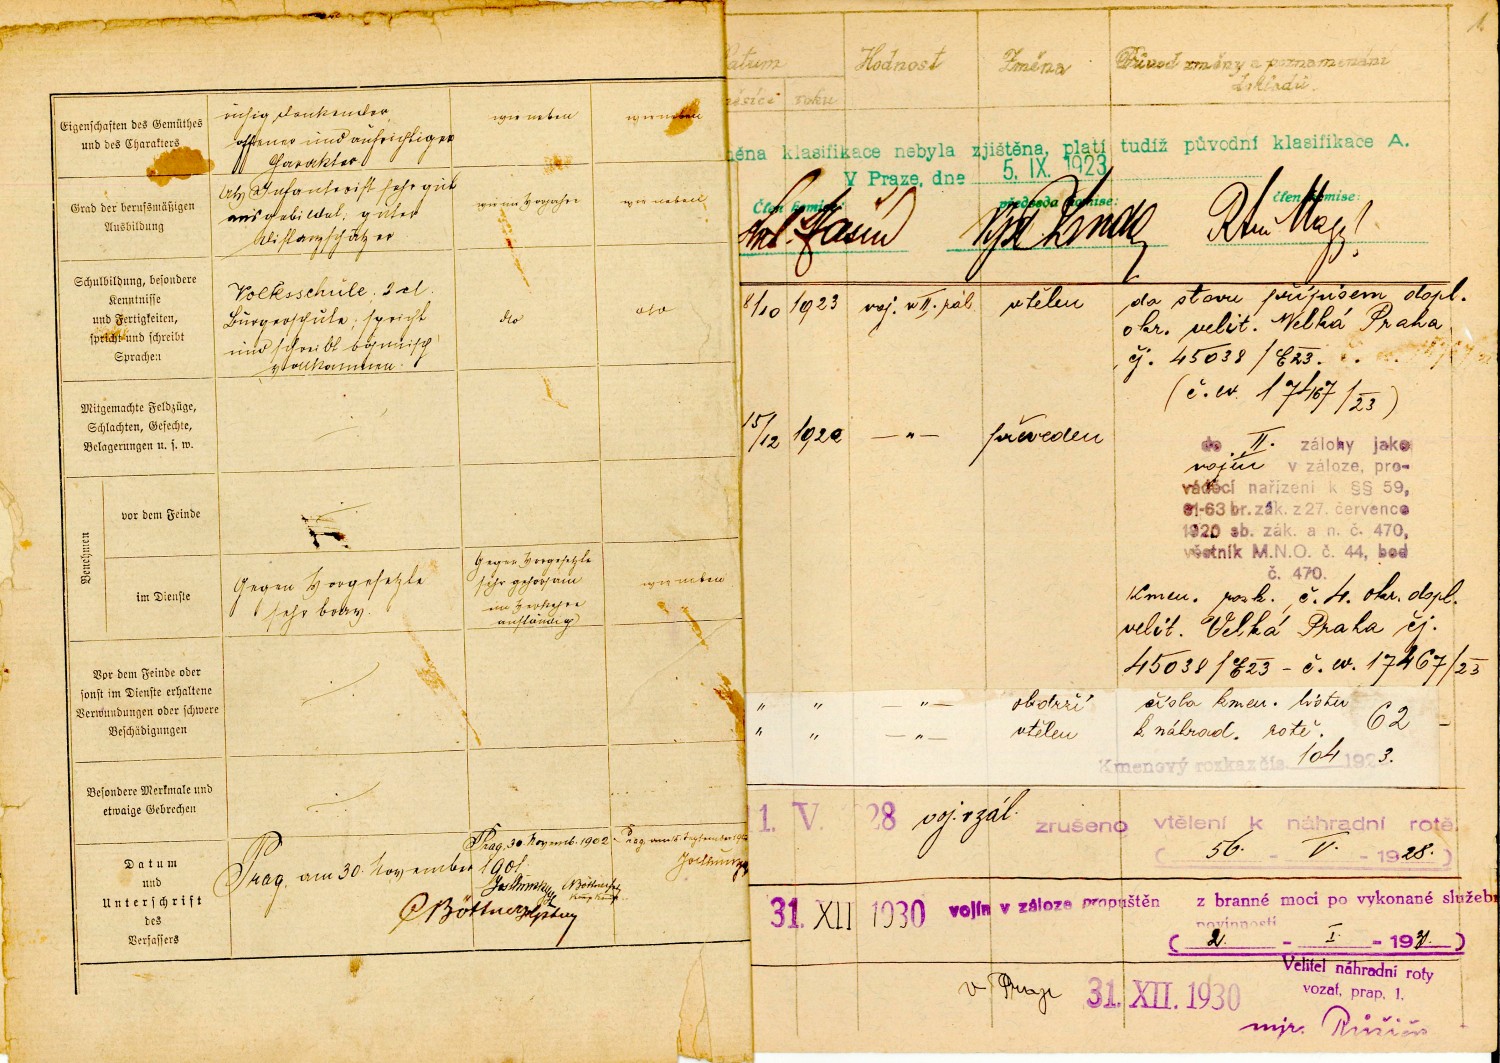 Eigenschaften des Gemüthes
und des Charakters
ruhig denkender,
offener und aufrichtiger
Charakter
wie neben
wie neben
Grad der berufsmäßigen
Ausbildung
als Infanterist sehr gut
ausgebildet, guter
Distanzschätzer
wie im Vorjahre
wie neben
Schulbildung, besondere
Kenntnisse
und Fertigkeiten,
spricht und schreibt
Sprachen
Volksschule, 3 cl.
Bürgerschule; spricht
und schreibt böhmisch
vollkommen.
dto
dto
Mitgemachte Feldzüge,
Schlachten, Gefechte,
Belagerungen u. s. w.
Benehmen
vor dem Feinde
im Dienste
Gegen Vorgesetzte
sehr brav.
Gegen Vorgesetzte
sehr gehorsam
im Verkehre
anständig
wie neben
Vor dem Feinde oder
sonst im Dienste erhaltene
Verwundungen oder schwere
Beschädigungen
Besondere Merkmale und
etwaige Gebrechen
Datum
und
Unterschrift
des
Verfassers
Prag, am 30. November 1901.
Böttner
Prag, 30. Novemb. 1902
Böttner
Prag, am 15. September
1.
Datum
měsíci
roku
Hodnost
Změna
Původ změny a poznamenání
dokladů.
měna klasifikace nebyla zjištěna, platí tudíž původní klasifikace A.
V Praze, dne 5. IX. 1923
Člen komise:
předseda komise:
člen komise:
8/10 1923 voj. v II. zál. vtělen do stavu přípisem dopl.
okr. velit. Velká Praha
čj. 45038/E23.
(č. ev. 17467/23)
15/12 192 — „ — převeden
do II. zálohy jako
vojín v záloze, pro-
váděcí nařízení k §§ 59,
61-63 br. zák. z 27. července
1920 sb. zák. a n. č. 470,
věstník M.N.O. č. 44, bod
č. 470.
Kmen. rozk. č. 4. okr. dopl.
velit. Velká Praha čj.
45038/E23 – č. ev. 17467/23
„ „ — „ — obdrží číslo kmen. listu 62 –
„ „ — „ — vtělen k náhrad. rotě.
Kmenový rozkaz čís. 104 1923.
1. V. 28 voj. v zál. zrušeno vtělení k náhradní rotě.
( 56. - V. - 1928. )
31. XII 1930 vojín v záloze propuštěn z branné moci po vykonané služeb
povinnosti
( 2. - I. - 1931. )
Velitel náhradní roty
vozat. prap. 1.
v Praze 31. XII. 1930
mjr. Růžička